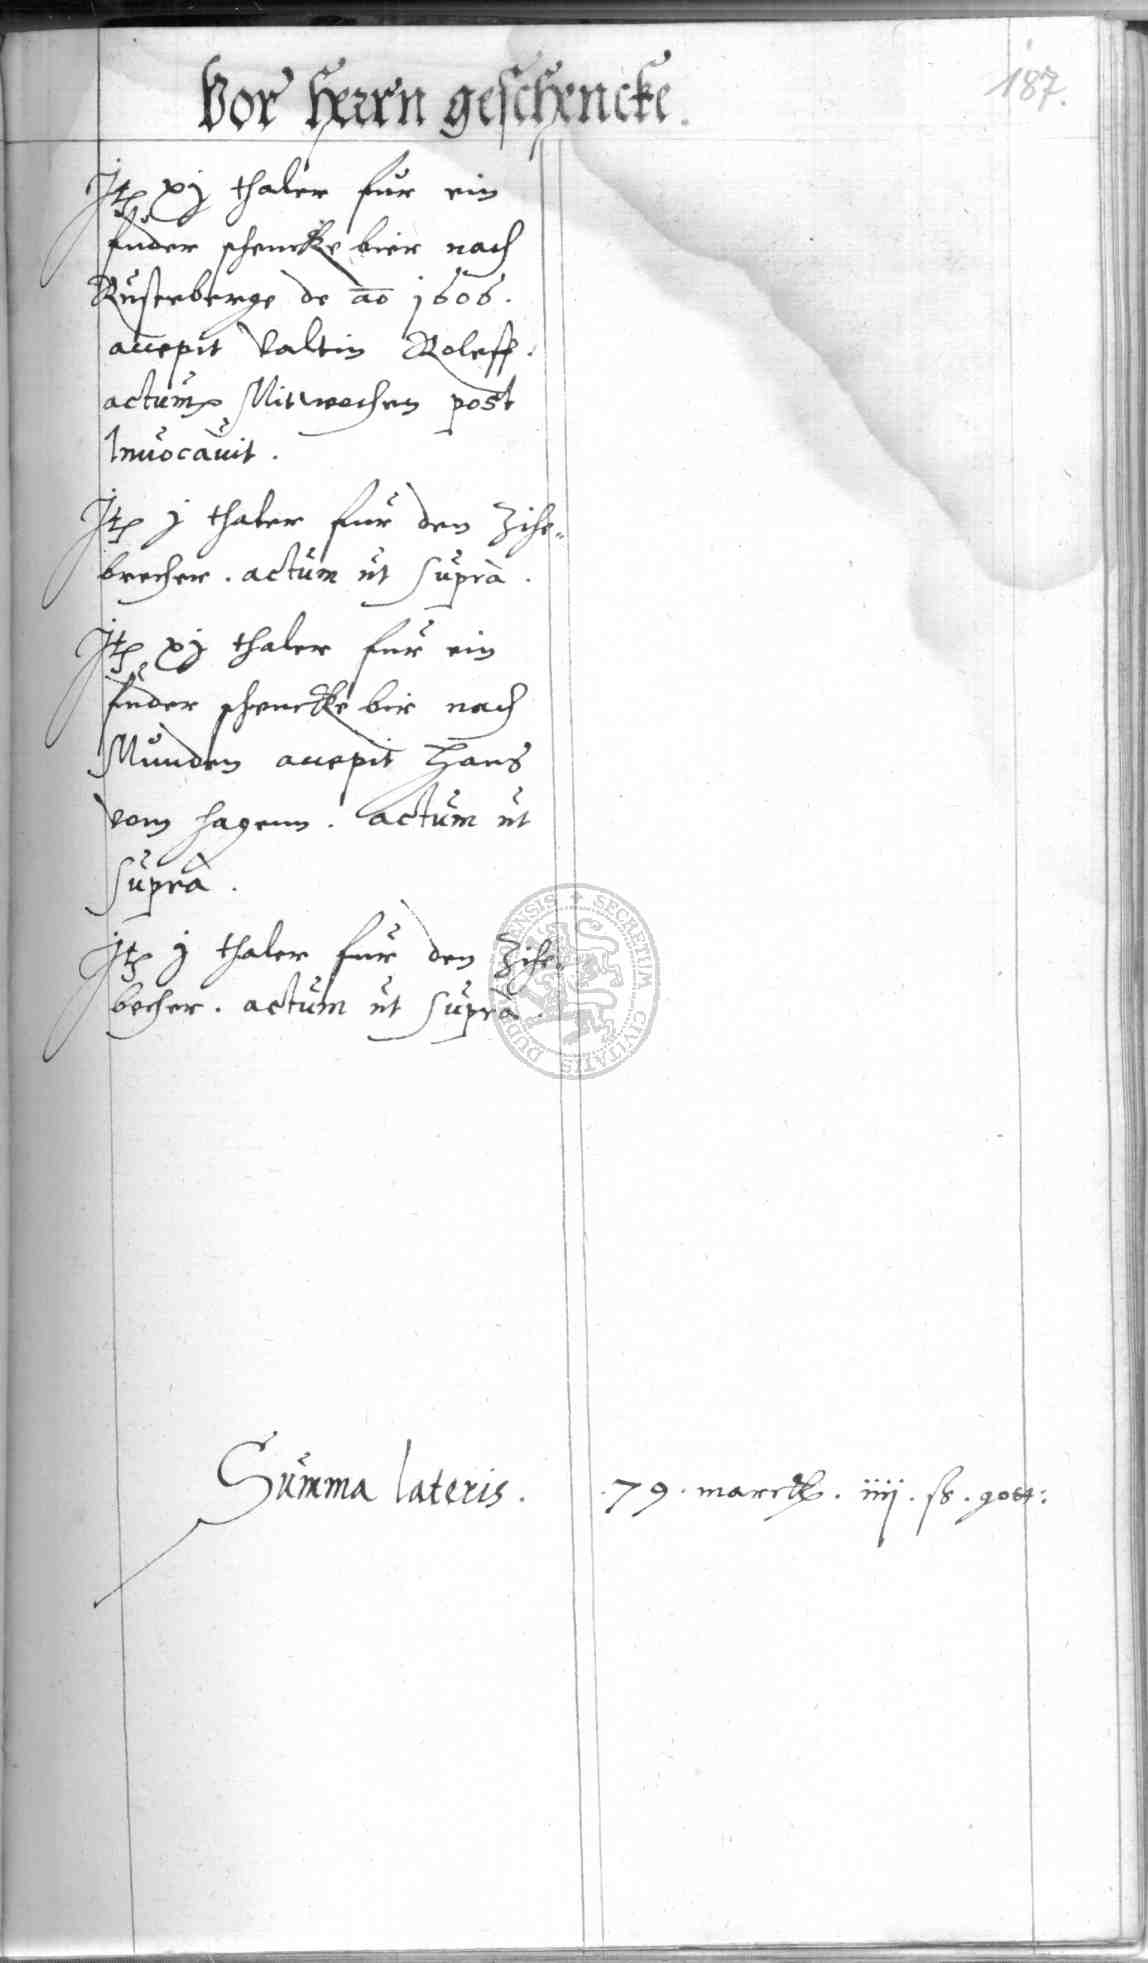 187.
Vor Herrn geschencke.
Jtem xj thaler fur ein
fuder schencke bier nach
Rusteberge de ao 1606.
accepit Valtin Roleff.
actum Mitwochen post
Invocavit.
Jtem j thaler fur den Zihe-
brecher. actum ut supra.
Jtem xj thaler fur ein
fuder schencke bir nach
Munden accepit Hans
vom hagenn. actum ut
supra.
Jtem j thaler fur den Zihe-
becher. actum ut supra.
SECRETUM CIVITATIS
Summa lateris. 79. marck. iiij. ß. gott: